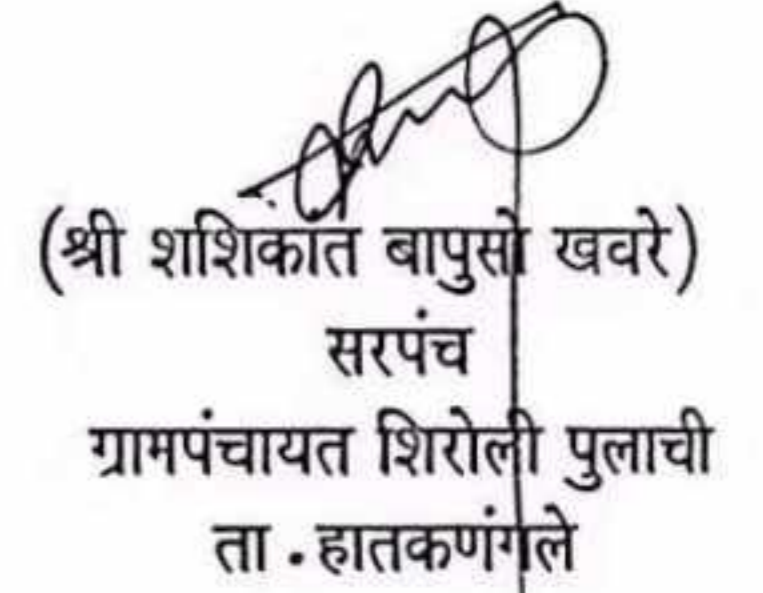 (श्री शशिकांत बापुसो खवरे)
सरपंच
ग्रामपंचायत शिरोली पुलाची
ता . हातकणंगले